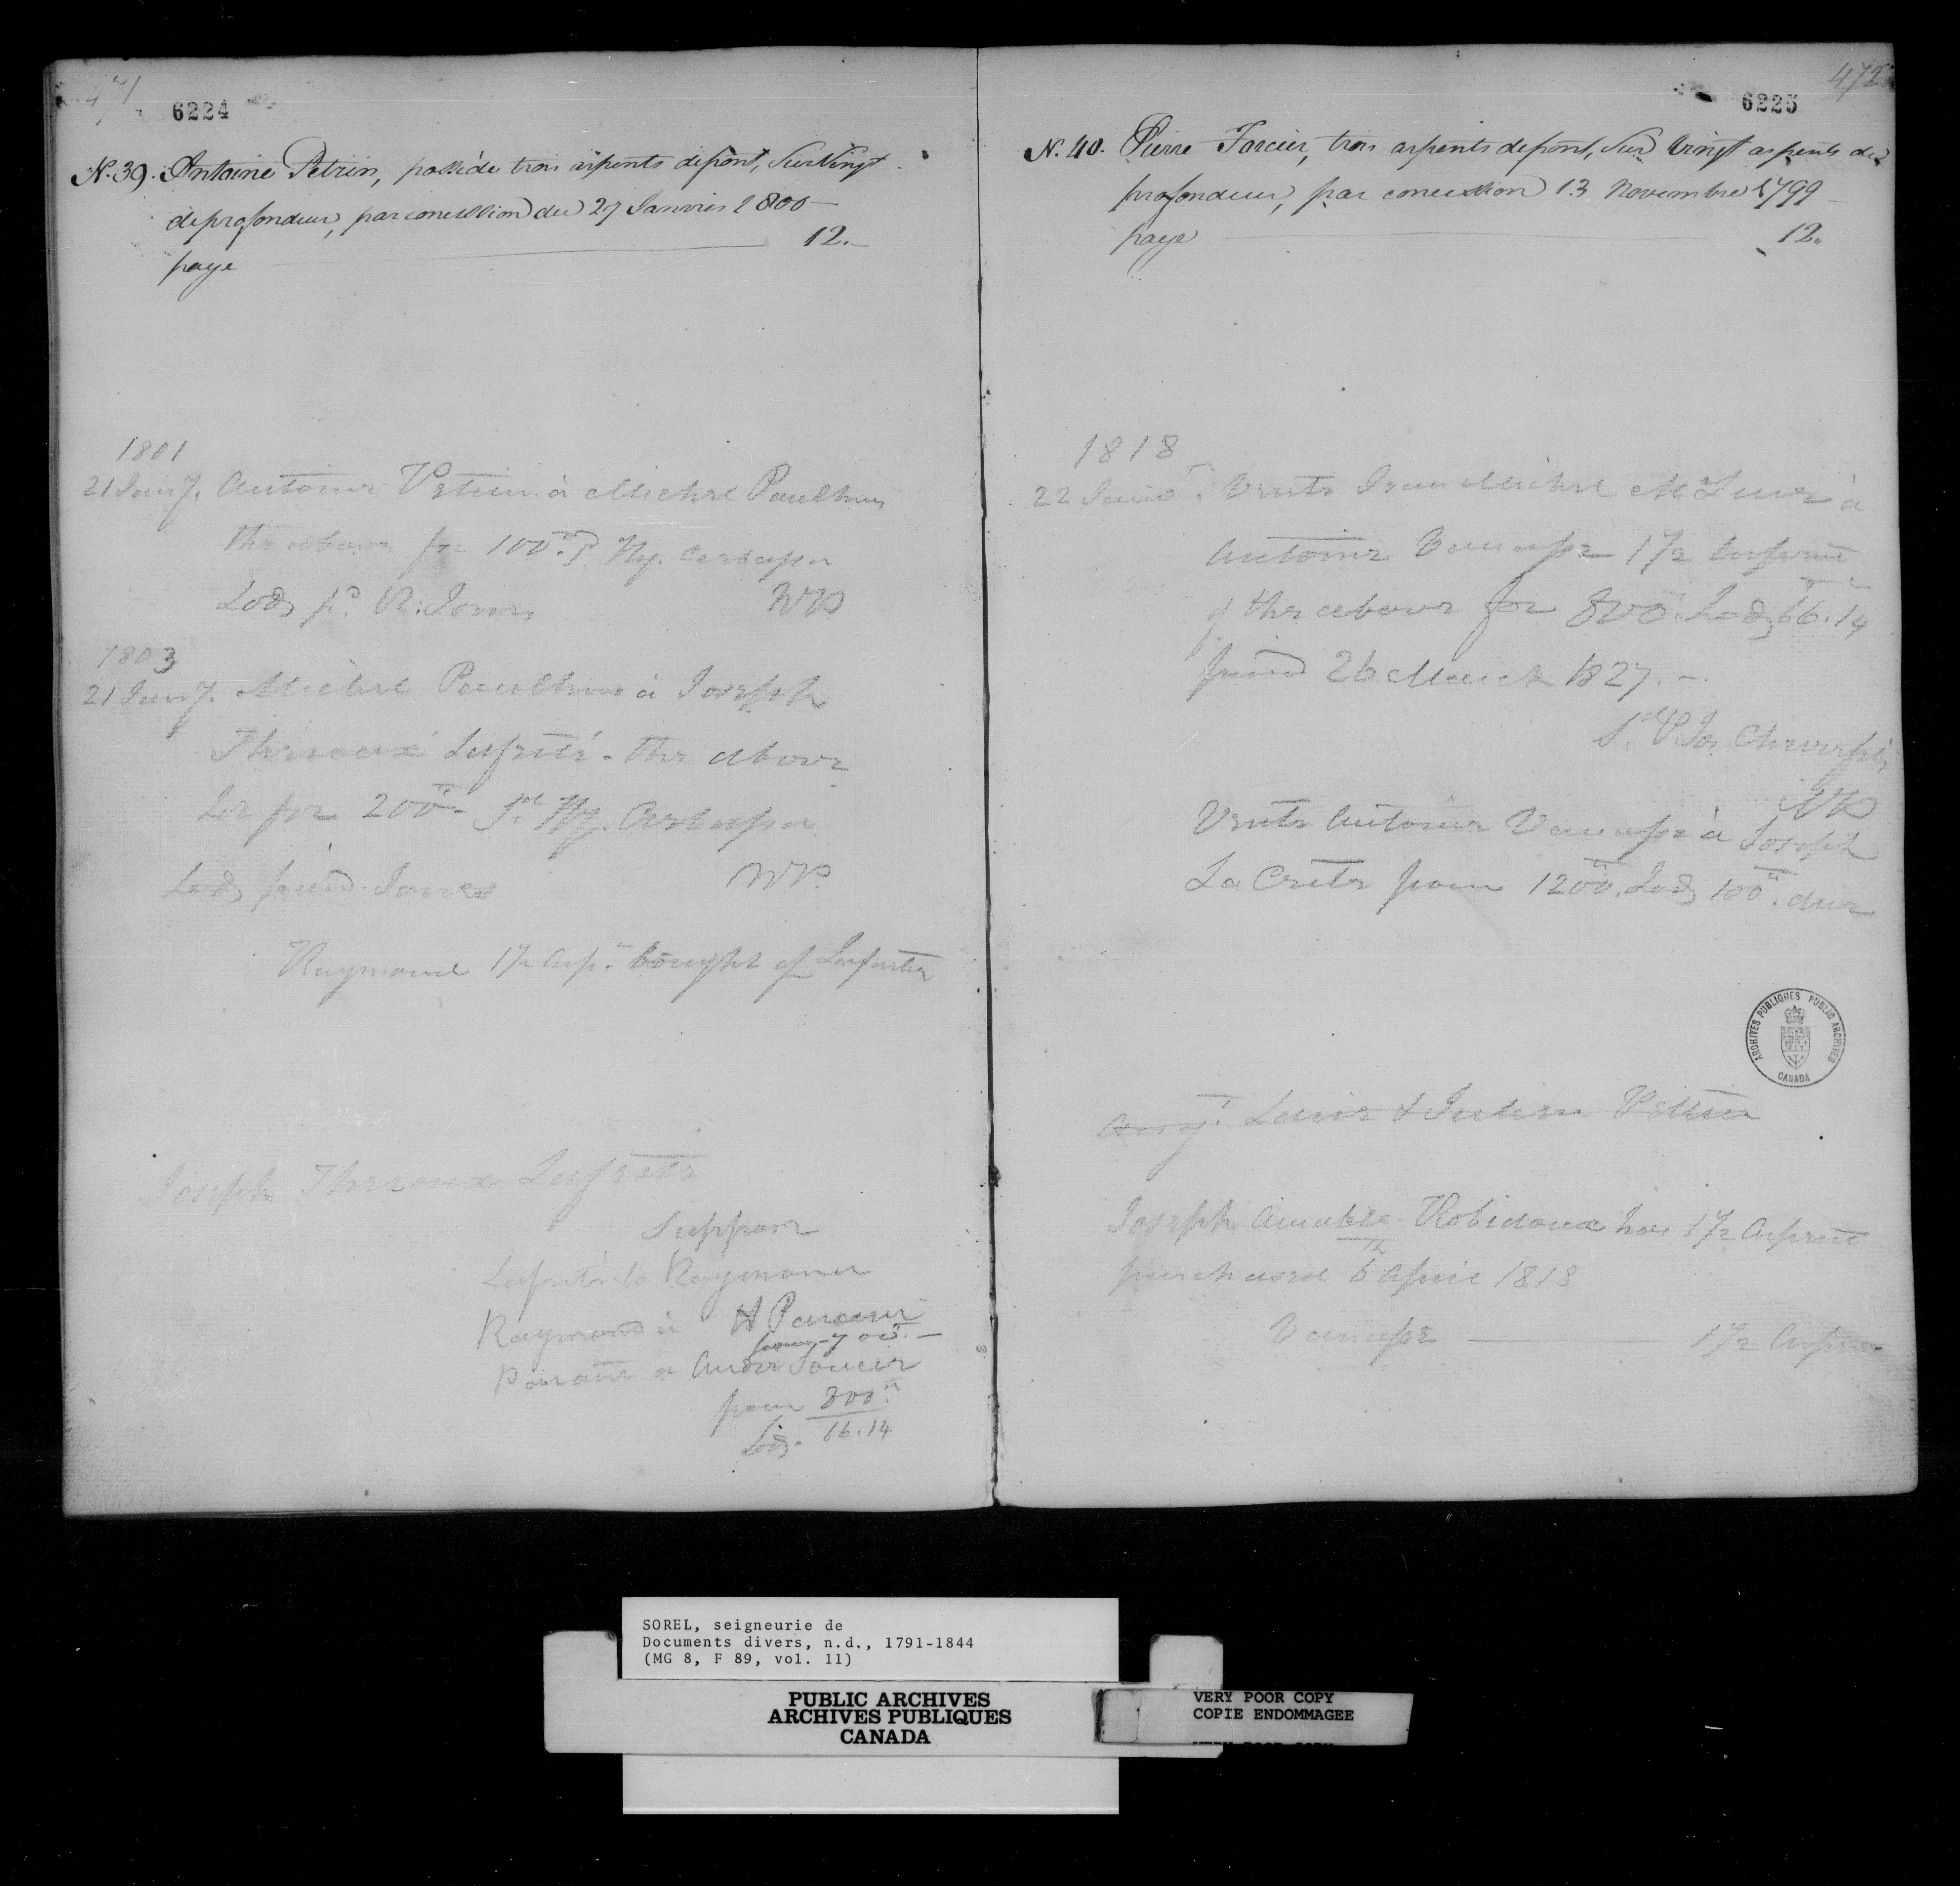 471
6224
N. 39. Antoine Petrin, posséde trois arpents de front, Sur Vingt
de profondeur, par concession du 27 Janvier 1800 —
paye 12. —
1801
21 Jany. Antoine Petrin à Michel Paulhus
the above for 100tt Sd. Hy. Crebassa
Lods pd. R: Jones NP
1803
21 Jany. Michel Paulhus à Joseph
Theroux Laferté - the above
for 200tt - Sd. Hy. Crebassa
Lods paid Jones NP.
Raymond 1½ Arp. bought of Laferté
Joseph Theroux Laferté
Suppose
Laferté to Raymond
Raymond à A Parent
pour 700tt. —
Parant a
pour 800tt
Lods. 66.14
472
6225
N. 40. Pierre Forcier, trois arpents de front, Sur Vingt arpents de
profondeur, par concession 13 Novembre 1799 —
paye 12.
1818
22 Vente Jean Michel à
Antoine Vanasse 1½ arpent
of the above for 800tt Lods 66.14
paid 26 March 1827. —
Sd. P. Jos. Chevrefils
NP
Vente Antoine Vanasse à Joseph
La Crete pour 1200tt. Lods 100tt. due
ARCHIVES PUBLIQUES PUBLIC ARCHIVES
CANADA
Petrin
Joseph Amable Robidoux has 1½ Arpent
purchased 6th April 1818
Vanasse — 1½ Arpent
SOREL, seigneurie de
Documents divers, n.d., 1791-1844
(MG 8, F 89, vol. 11)
PUBLIC ARCHIVES
ARCHIVES PUBLIQUES
CANADA
VERY POOR COPY
COPIE ENDOMMAGEE
VERY POOR COPY